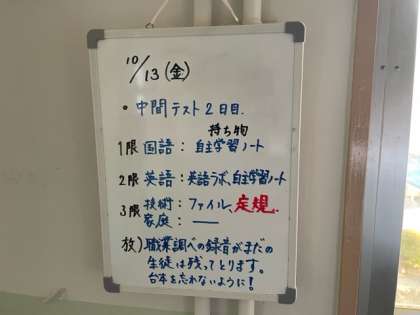 10/13(金)
・中間テスト2日目.
持ち物
1限 国語: 自主学習ノート
2限 英語: 英語ラボ、自主学習ノート
3限 技術: ファイル、定規.
家庭: ——
放)職業調べの録音がまだの
生徒は残ってとります。
台本を忘れないように!